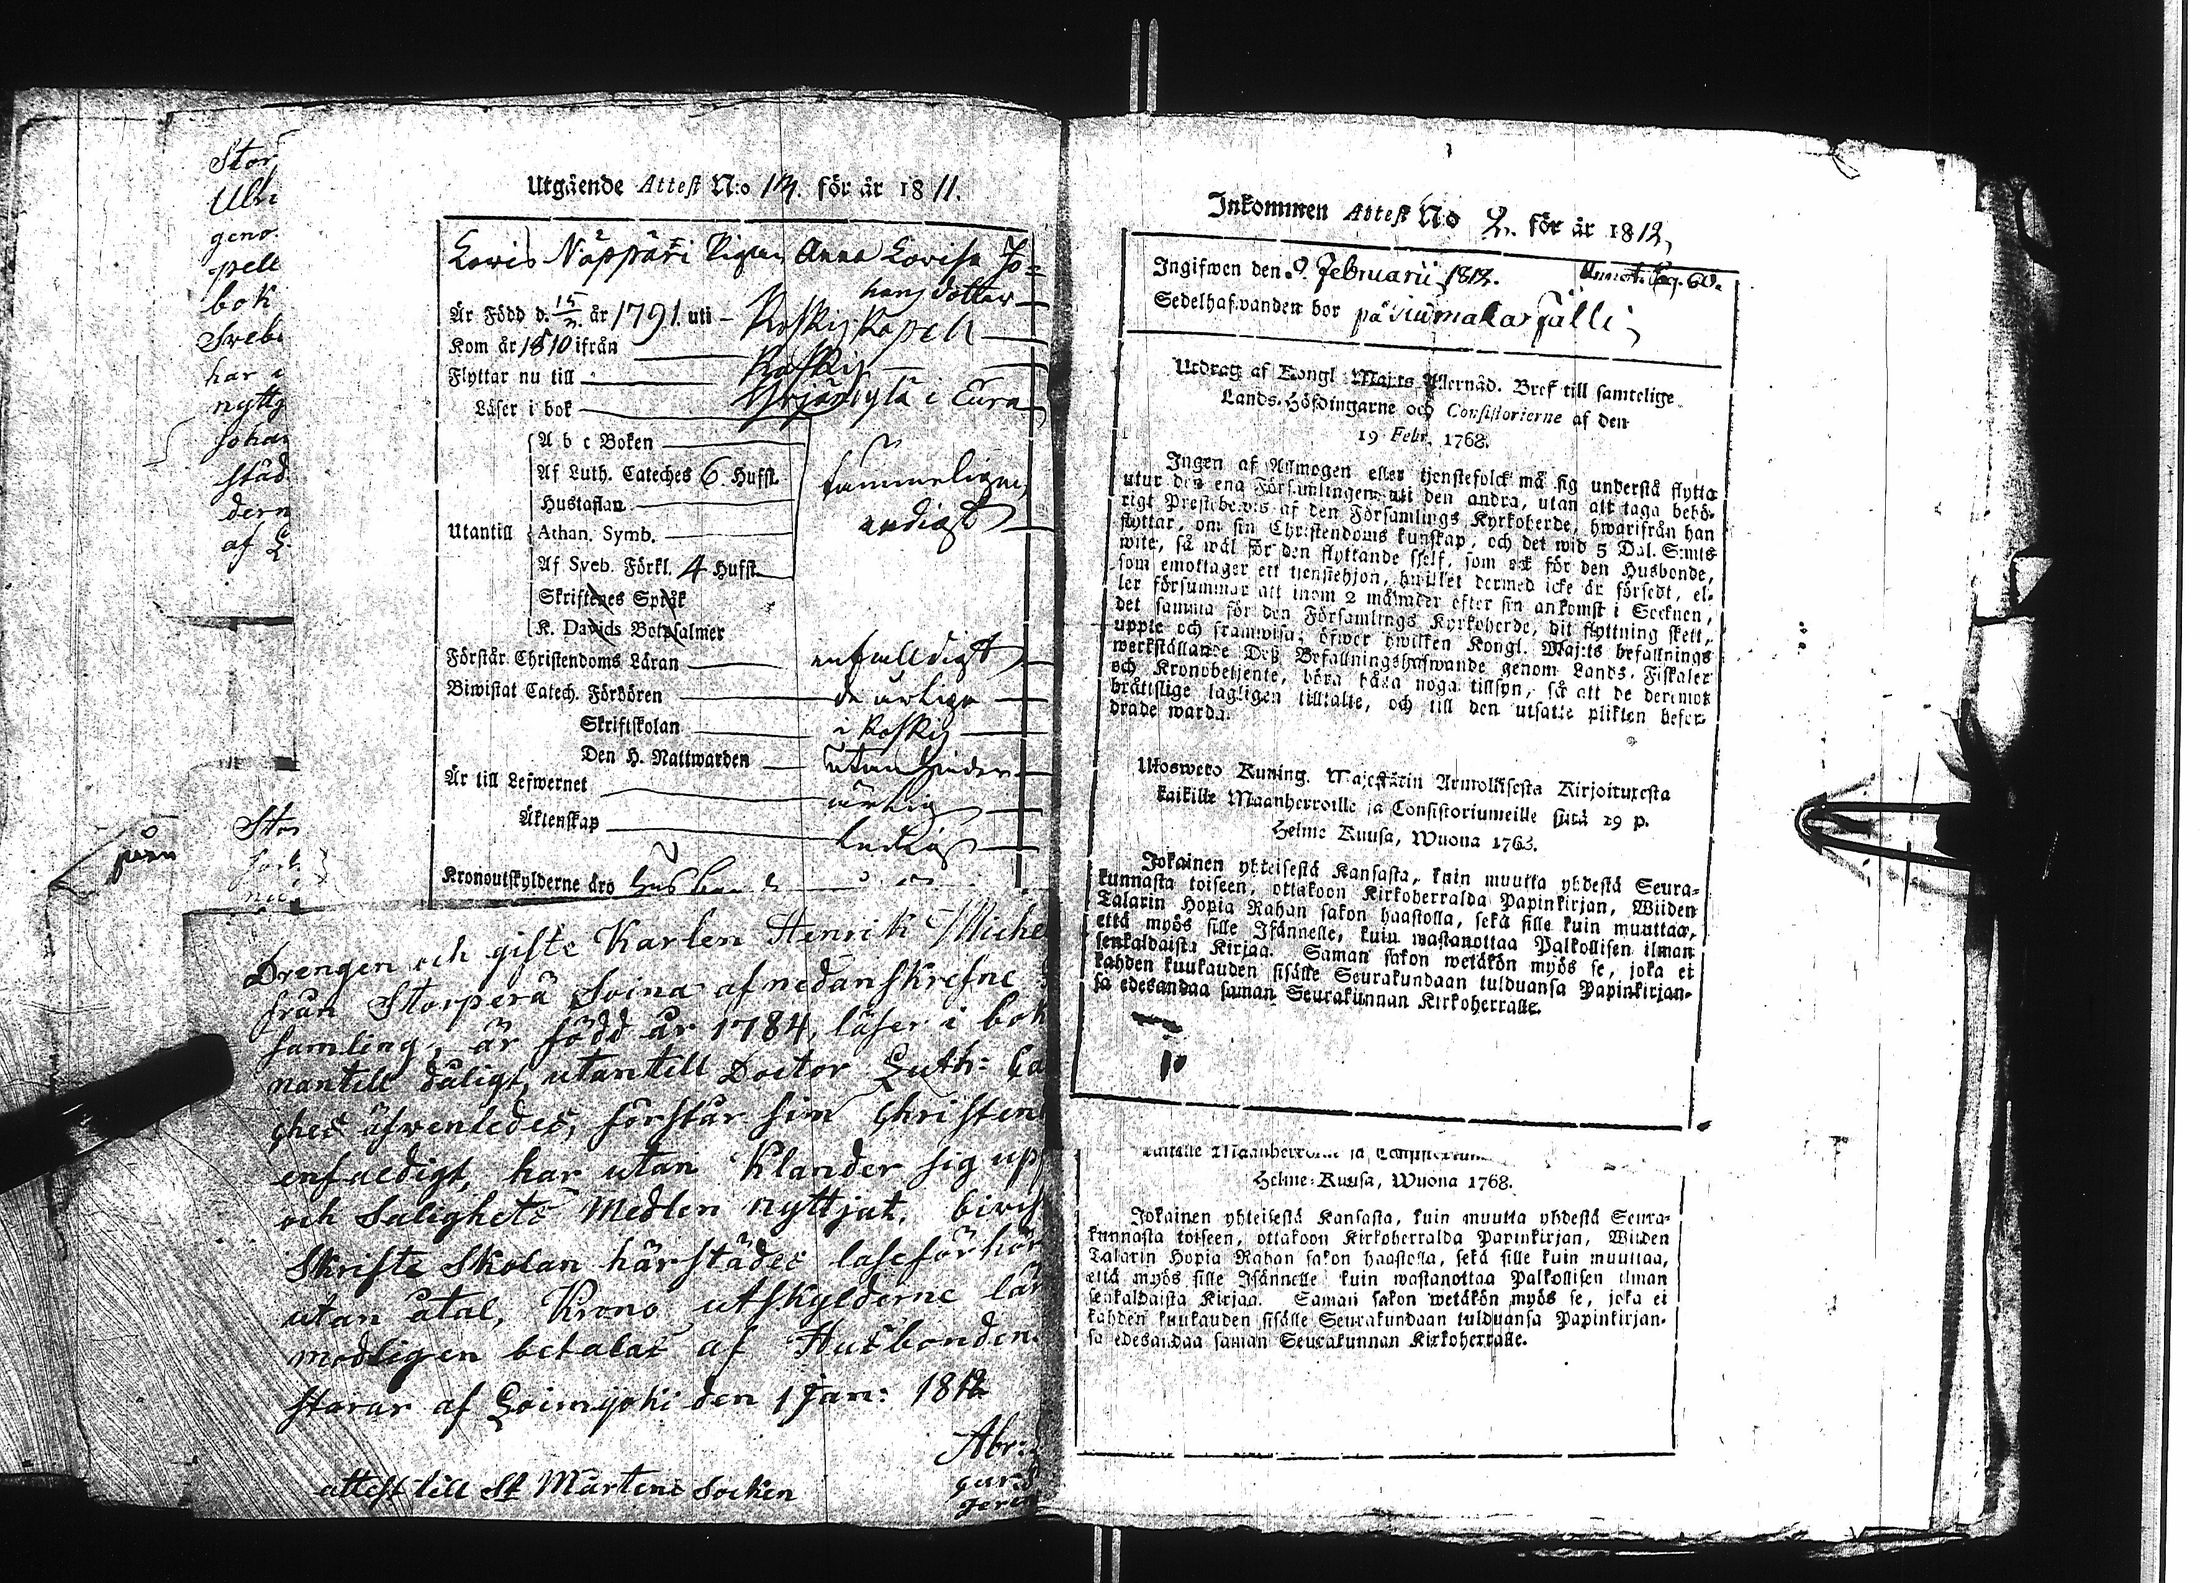 Stor
Ulri
geno
pell
bok
Sveb
har
nyttj
Johan
städ
dern
af
Utgående Attest N:o 13. för år 1811.
Lovis Näppäri Pigan Anna Lovisa Jo=
hansdotter
Är Född d. 15/3. år 1791. uti Koskis Kapell
Kom år 1810 ifrån Koskis
Flyttar nu till i Eura
Läser i bok
A b c Boken
Af Luth. Cateches 6. Hufst.
Hustaflan
Utantill Athan. Symb.
Af Sveb. Förkl. 4 Hufst.
Skriftenes Språk
K. Davids Botpsalmer
Förstår Christendoms Läran enfalldigt
Biwistat Catech. Förhören de årliga
Skriftskolan i Koskis
Den H. Nattwarden utan hinder
Är till Lefwernet ärlig
Äktenskap ledig
Kronoutskylderne äro
Stor
Drengen och gifte Karlen Henrik Miche
från Storperä Soina af nedanskrefne
samling, är född år 1784, läser i bok
nantill dåligt, utantill Doctor Luth: Ca
ches äfvenledes, förstår sin Christen
enfaldigt, har utan Klander sig upf
och Salighets Medlen nyttjat, bivis
Skrifte Skolan härstädes läseförhör
utan åtal, Krono utskylderne lär
modligen betalas af Husbonden.
starar af Loimijoki den 1 Jan: 1812
Abr:
attest till St Mårtens Socken
Inkommen Attest N:o 2. för år 1812,
Ingifwen den 9. Februarii 1812. Annot. pag. 60.
Sedelhafwanden bor på
Utdrag af Kongl. Maj:ts Allernåd. Bref till samtelige
Lands-Höfdingarne och Consistorierne af den
19 Febr. 1768.
Ingen af Allmogen eller tjenstefolck må sig understå flytta
utur den ena Församlingen uti den andra, utan att taga behö-
rigt Prestebewis af den Församlings Kyrkoherde, hwarifrån han
flyttar, om sin Christendoms kunskap, och det wid 5 Dal. S:mts
wite, så wäl för den flyttande sjelf, som ock för den Husbonde,
som emottager ett tjenstehjon, hwilket dermed icke är försedt, el-
ler försummar att inom 2 månader efter sin ankomst i Socknen,
det samma för den Församlings Kyrkoherde, dit flyttning skett,
uppte och framwisa; öfwer hwilken Kongl. Maj:ts befallnings
werkställande Deß Befallningshafwande genom Lands-Fiskaler
och Kronobetjente, böra hålla noga tillsyn, så att de deremot
bråttslige lagligen tilltalte, och till den utsatte plikten befor-
drade warda.
Ulosweto Kuning. Majestätin Armollisesta Kirjoituxesta
kaikille Maanherroille ja Consistoriumeille siitä 19 p.
Helme Kuusa, Wuona 1768.
Jokainen yhteisestä Kansasta, kuin muutta yhdestä Seura-
kunnasta toiseen, ottakoon Kirkoherralda Papinkirjan, Wiiden
Talarin Hopia Rahan sakon haastolla, sekä sille kuin muuttaa,
että myös sille Isännelle, kuin wastanottaa Palkollisen ilman
senkaldaista Kirjaa. Saman sakon wetäkön myös se, joka ei
kahden kuukauden sisälle Seurakundaan tulduansa Papinkirjan-
sa edesandaa saman Seurakunnan Kirkoherralle.
Helme-Kuusa, Wuona 1768.
Jokainen yhteisestä Kansasta, kuin muutta yhdestä Seura-
kunnasta toiseen, ottakoon Kirkoherralda Papinkirjan, Wiiden
Talarin Hopia Rahan sakon haastolla, sekä sille kuin muuttaa,
että myös sille Isännelle kuin wastanottaa Palkollisen ilman
senkaldaista Kirjaa. Saman sakon wetäkön myös se, joka ei
kahden kuukauden sisälle Seurakundaan tulduansa Papinkirjan-
sa edesandaa saman Seurakunnan Kirkoherralle.